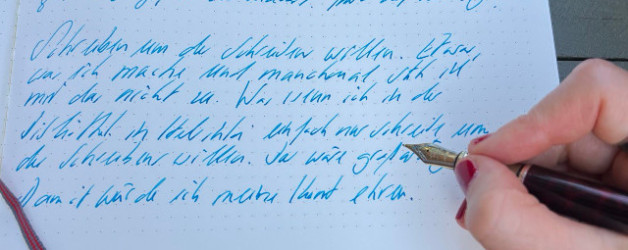 Schreiben um des Schreiben willen. Etwas,
was ich mache und manchmal steh ich
mir das nicht zu. Was wenn ich in der
einfach nur schreibe um
des Schreiben willen. Das wäre großartig
Damit würde ich meine Kunst ehren.